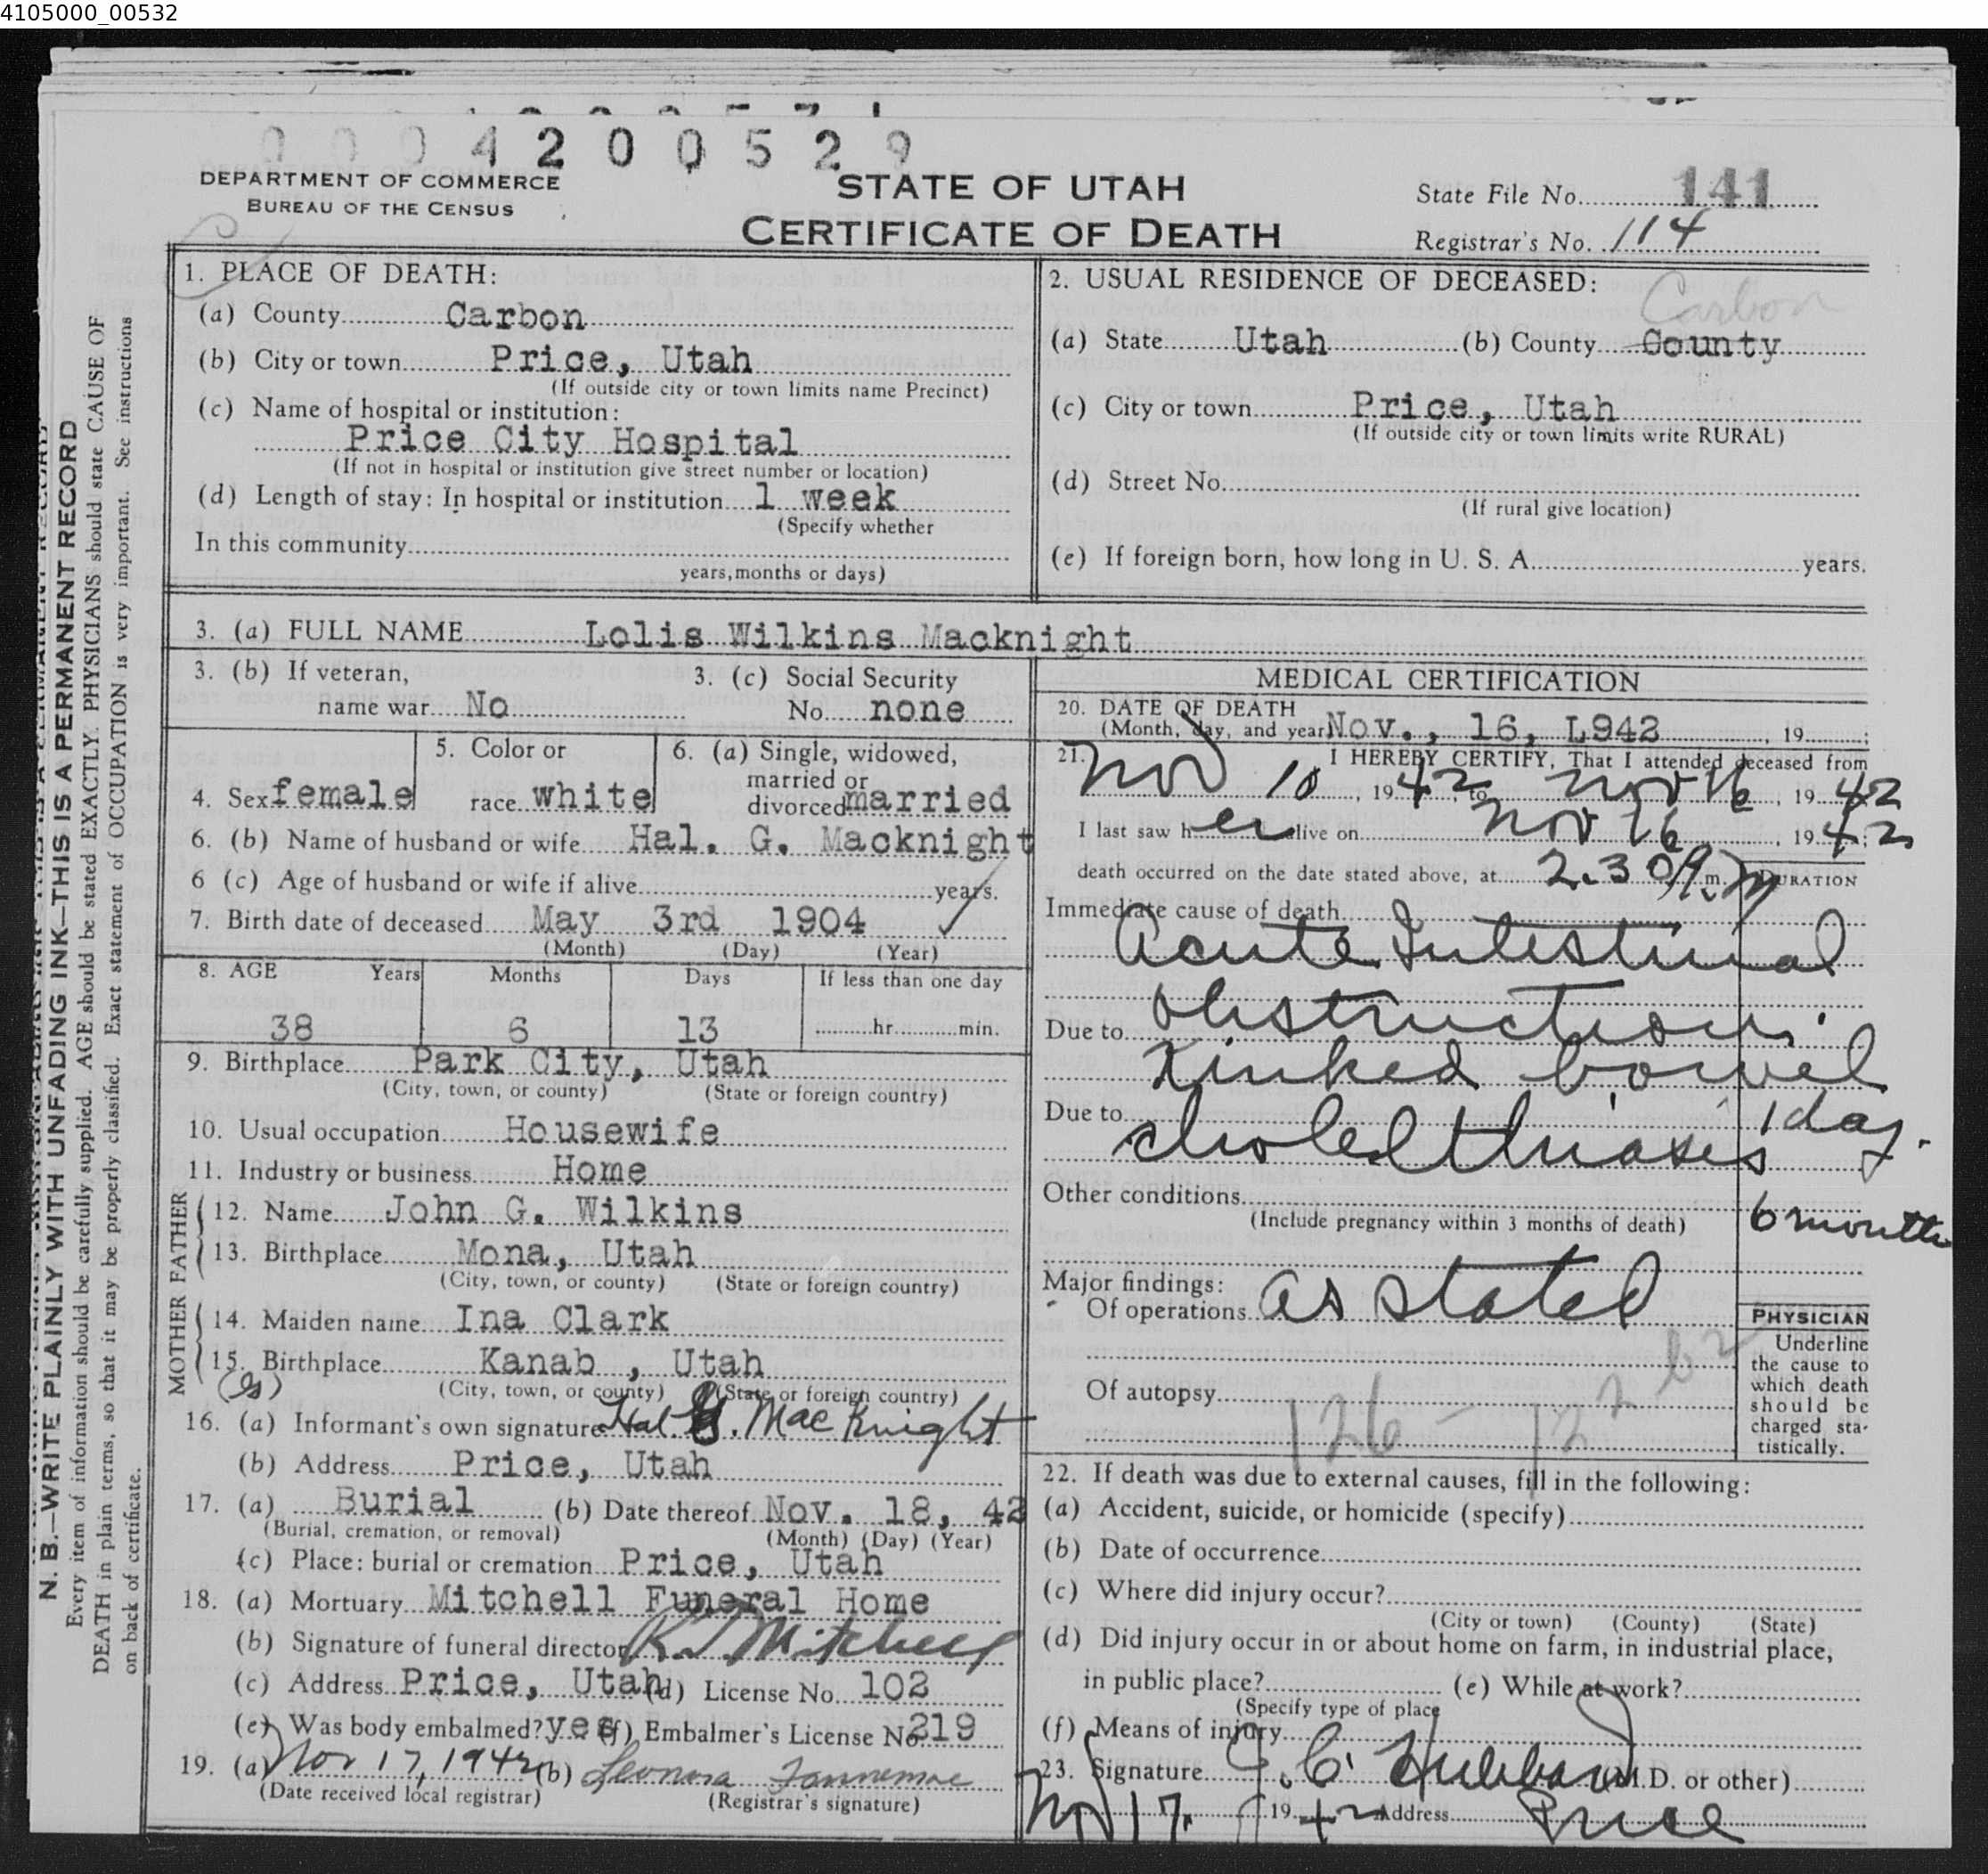 4105000_00532
0004200529
DEPARTMENT OF COMMERCE
BUREAU OF THE CENSUS
STATE OF UTAH
CERTIFICATE OF DEATH
State File No. 141
Registrar's No. 114
N. B.—WRITE PLAINLY WITH UNFADING INK—THIS IS A PERMANENT RECORD
Every item of information should be carefully supplied. AGE should be stated EXACTLY. PHYSICIANS should state CAUSE OF
DEATH in plain terms, so that it may be properly classified. Exact statement of OCCUPATION is very important. See instructions
on back of certificate.
1. PLACE OF DEATH:
(a) County Carbon
(b) City or town Price, Utah
(If outside city or town limits name Precinct)
(c) Name of hospital or institution:
Price City Hospital
(If not in hospital or institution give street number or location)
(d) Length of stay: In hospital or institution 1 week
(Specify whether
In this community
years, months or days)
2. USUAL RESIDENCE OF DECEASED:
Carbon
(a) State Utah (b) County County
(c) City or town Price, Utah
(If outside city or town limits write RURAL)
(d) Street No.
(If rural give location)
(e) If foreign born, how long in U. S. A. years.
3. (a) FULL NAME Lolis Wilkins Macknight
3. (b) If veteran,
name war No
3. (c) Social Security
No. none
4. Sex female
5. Color or
race white
6. (a) Single, widowed,
married or
divorced married
6. (b) Name of husband or wife Hal. G. Macknight
6 (c) Age of husband or wife if alive years.
7. Birth date of deceased May 3rd 1904
(Month) (Day) (Year)
8. AGE Years Months Days If less than one day
38 6 13 hr. min.
9. Birthplace Park City, Utah
(City, town, or county) (State or foreign country)
10. Usual occupation Housewife
11. Industry or business Home
FATHER
12. Name John G. Wilkins
13. Birthplace Mona, Utah
(City, town, or county) (State or foreign country)
MOTHER
14. Maiden name Ina Clark
15. Birthplace Kanab , Utah
(City, town, or county) (State or foreign country)
16. (a) Informant's own signature Hal G. MacKnight
(b) Address Price, Utah
17. (a) Burial (b) Date thereof Nov. 18, 42
(Burial, cremation, or removal) (Month) (Day) (Year)
(c) Place: burial or cremation Price, Utah
18. (a) Mortuary Mitchell Funeral Home
(b) Signature of funeral director Mitchell
(c) Address Price, Utah (d) License No. 102
(e) Was body embalmed? yes (f) Embalmer's License No. 219
19. (a) Nov 17, 1942 (b) Leonora
(Date received local registrar) (Registrar's signature)
MEDICAL CERTIFICATION
20. DATE OF DEATH
(Month, day, and year) Nov., 16, L942 , 19 ;
21. I HEREBY CERTIFY, That I attended deceased from
Nov 10, 1942, to Nov 16, 1942
I last saw her alive on Nov 16, 1942;
death occurred on the date stated above, at 2.30 m.
DURATION
Immediate cause of death
Acute Intestinal
obstruction
Due to
Kinked bowel
Due to 1 day.
Other conditions
(Include pregnancy within 3 months of death)
6 months
Major findings:
Of operations as stated
Of autopsy
PHYSICIAN
Underline
the cause to
which death
should be
charged sta-
tistically.
22. If death was due to external causes, fill in the following:
(a) Accident, suicide, or homicide (specify)
(b) Date of occurrence
(c) Where did injury occur?
(City or town) (County) (State)
(d) Did injury occur in or about home on farm, in industrial place,
in public place? (e) While at work?
(Specify type of place
(f) Means of injury
23. Signature J. C. Hubbard (M.D. or other)
Nov 17, 1942 Address Price